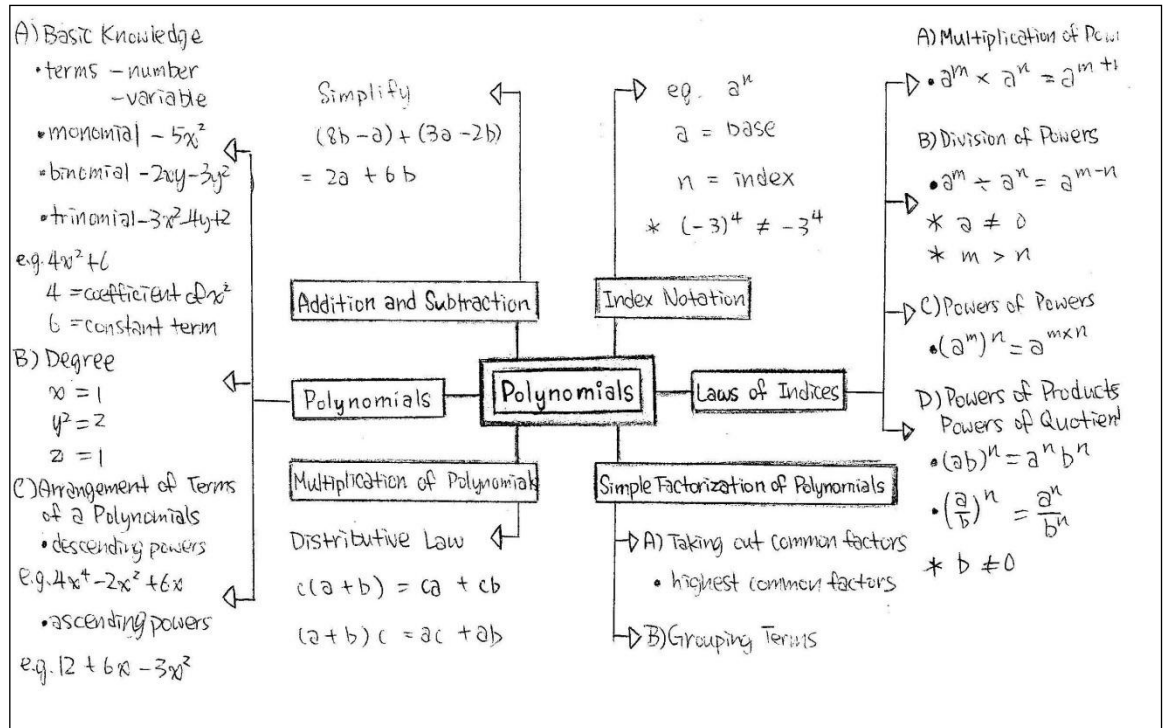 A) Basic Knowledge
•terms – number
– variable
•monomial – 5x²
•binomial – 2xy – 3y²
•trinomial – 3x² – 4y + 2
e.g. 4x² + 6
4 = coefficient of x²
6 = constant term
B) Degree
x = 1
y² = 2
z = 1
C) Arrangement of Terms
of a Polynomials
•descending powers
e.g. 4x⁴ – 2x² + 6x
•ascending powers
e.g. 12 + 6x – 3x²
Polynomials
Simplify
(8b – a) + (3a – 2b)
= 2a + 6b
Addition and Subtraction
Multiplication of Polynomials
Distributive Law
c(a + b) = ca + cb
(a + b) c = ac + ab
Polynomials
eg. aⁿ
a = base
n = index
* (-3)⁴ ≠ -3⁴
Index Notation
Laws of Indices
Simple Factorization of Polynomials
A) Taking out common factors
• highest common factors
B) Grouping Terms
A) Multiplication of
•aᵐ × aⁿ = aᵐ⁺
B) Division of Powers
•aᵐ ÷ aⁿ = aᵐ⁻ⁿ
* a ≠ 0
* m > n
C) Powers of Powers
•(aᵐ)ⁿ = aᵐˣⁿ
D) Powers of Products
Powers of Quotient
•(ab)ⁿ = aⁿbⁿ
•(a/b)ⁿ = aⁿ/bⁿ
* b ≠ 0